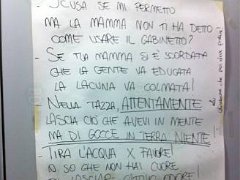 - SCUSA SE MI PERMETTO
MA LA MAMMA NON TI HA DETTO
COME USARE IL GABINETTO?
- SE TUA MAMMA SI È SCORDATA
CHE LA GENTE VA EDUCATA
LA LACUNA VA COLMATA!
- NELLA TAZZA, ATTENTAMENTE
LASCIA CIÒ CHE AVEVI IN MENTE
MA DI GOCCE IN TERRA NIENTE
- TIRA L'ACQUA X FAVORE!
SO CHE NON HAI CUORE
DI LASCIARE ODORE!